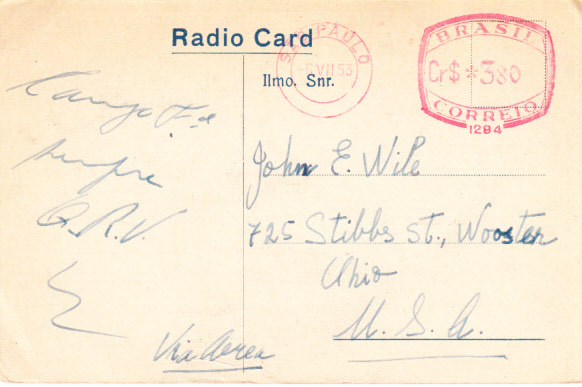 Radio Card
SÃO PAULO
-6 VII 53
BRASIL
Cr$ *380
CORREIO
1284
Ilmo. Snr.
sempre
Q.R.V.
John E. Wile
725 Stibbs St., Wooster
Ohio
U.S.A.
Via Aerea